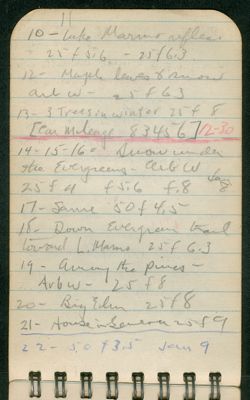 11
10 - Lake Marmo reflec.
25 f5.6 - 25 f6.3
12 - Maple leaves & snow
Ar6W - 25 f 63
13 - 3 Trees in winter 25 f 8
[Car mileage 83456] 12-30
14 - 15 - 16 - Snow under
the Evergreens - Ar6W Jan 8
25 f 9 f 5.6 f.8
17 - Same 50 f 4.5
18 - Down Evergreen trail
toward L. Marmo 25 f 6.3
19 - Among the pines -
Ar6W - 25 f8
20 - Big Elm 25 f8
21 - House in Seneca 25 f 9
22 - 50 f3.5 Jan 9